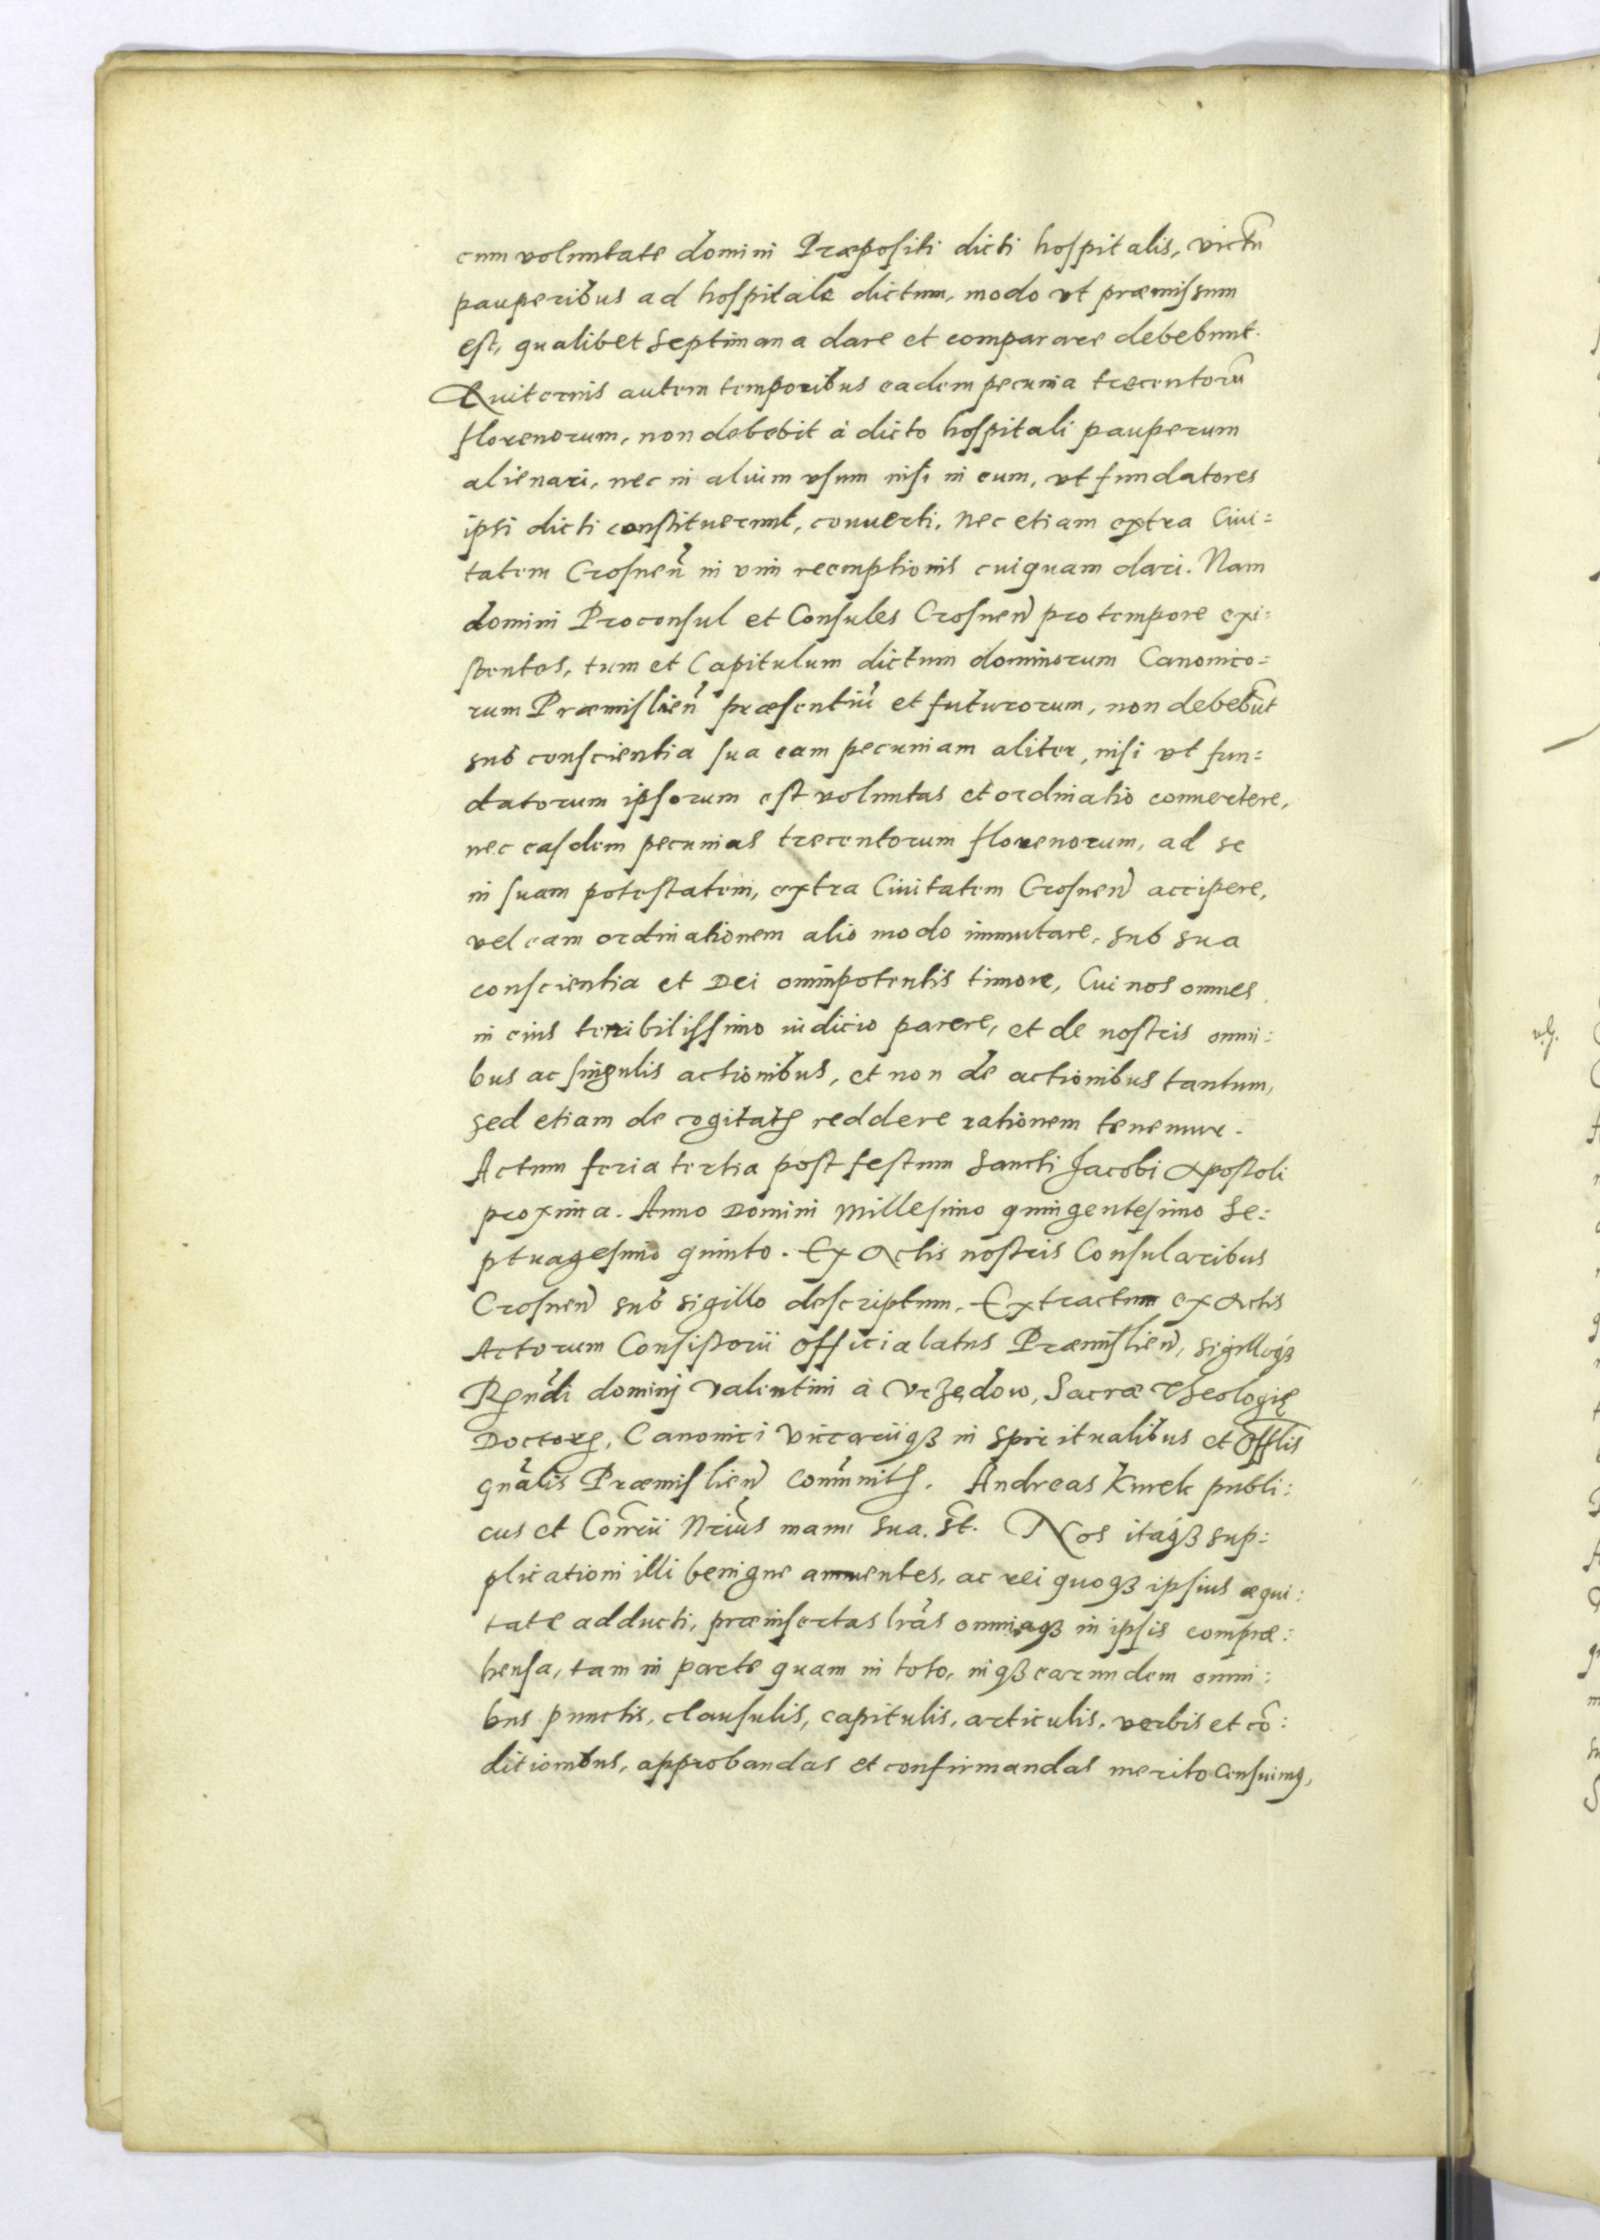 cum voluntate domini Præpositi dicti hospitalis, victũ
pauperibus ad hospitale dictum, modo vt præmissum
est, qualibet septimana dare et comparare debebunt.
Quiternis autem temporibus eadem pecunia trecentorũ
florenorum, non debebit à dicto hospitali pauperum
alienari, nec in alium vsum nisi in eum, vt fundatores
ipsi dicti constituerunt, conuerti, nec etiam extra Ciui=
tatem Crosneñ in vim reemptionis cuiquam dari. Nam
domini Proconsul et Consules Crosneñ pro tempore exi=
stentes, tum et Capitulum dictum dominorum Canonico=
rum Præmislieñ præsentiũ et futurorum, non debebũt
sub conscientia sua eam pecuniam aliter, nisi vt fun=
datorum ipsorum est voluntas et ordinatio conuertere,
nec easdem pecunias trecentorum florenorum, ad se
in suam potestatem, extra Ciuitatem Crosneñ accipere,
vel eam ordinationem alio modo immutare, sub sua
conscientia et Dei omnipotentis timore, Cui nos omnes
in eius terribilissimo iudicio parere, et de nostris omni=
bus ac singulis actionibus, et non de actionibus tantum,
sed etiam de cogitatꝭ reddere rationem tenemur.
Actum feria tertia post festum Sancti Jacobi Apostoli
proxima. Anno Domini Millesimo quingentesimo Se=
ptuagesimo quinto. Ex Actis nostris Consularibus
Crosneñ sub sigillo descriptum. Extractum ex Actis
Actorum Consistorii Officialatus Præmislieñ, sigilloqꝫ
Rꝭndi dominj Valentini à Vrzędow, Sacræ Theologię
Doctorꝭ, Canonici Vicariiqꝫ in spiritualibus et Offlis
gnãlis Præmislieñ com̃unitꝭ. Andreas Kurek publi=
cus et Con̄rii Nriũs manu sua. st̃. Nos itaqꝫ sup=
plicationi illi benigne annuentes, ac rei quoqꝫ ipsius æqui=
tate adducti, præinsertas lrãs omniaqꝫ in ipsis compræ=
hensa, tam in parte quam in toto, inqꝫ earundem omni=
bus punctis, clausulis, capitulis, articulis, verbis et cõ=
ditionibus, approbandas et confirmandas merito censuimꝰ,